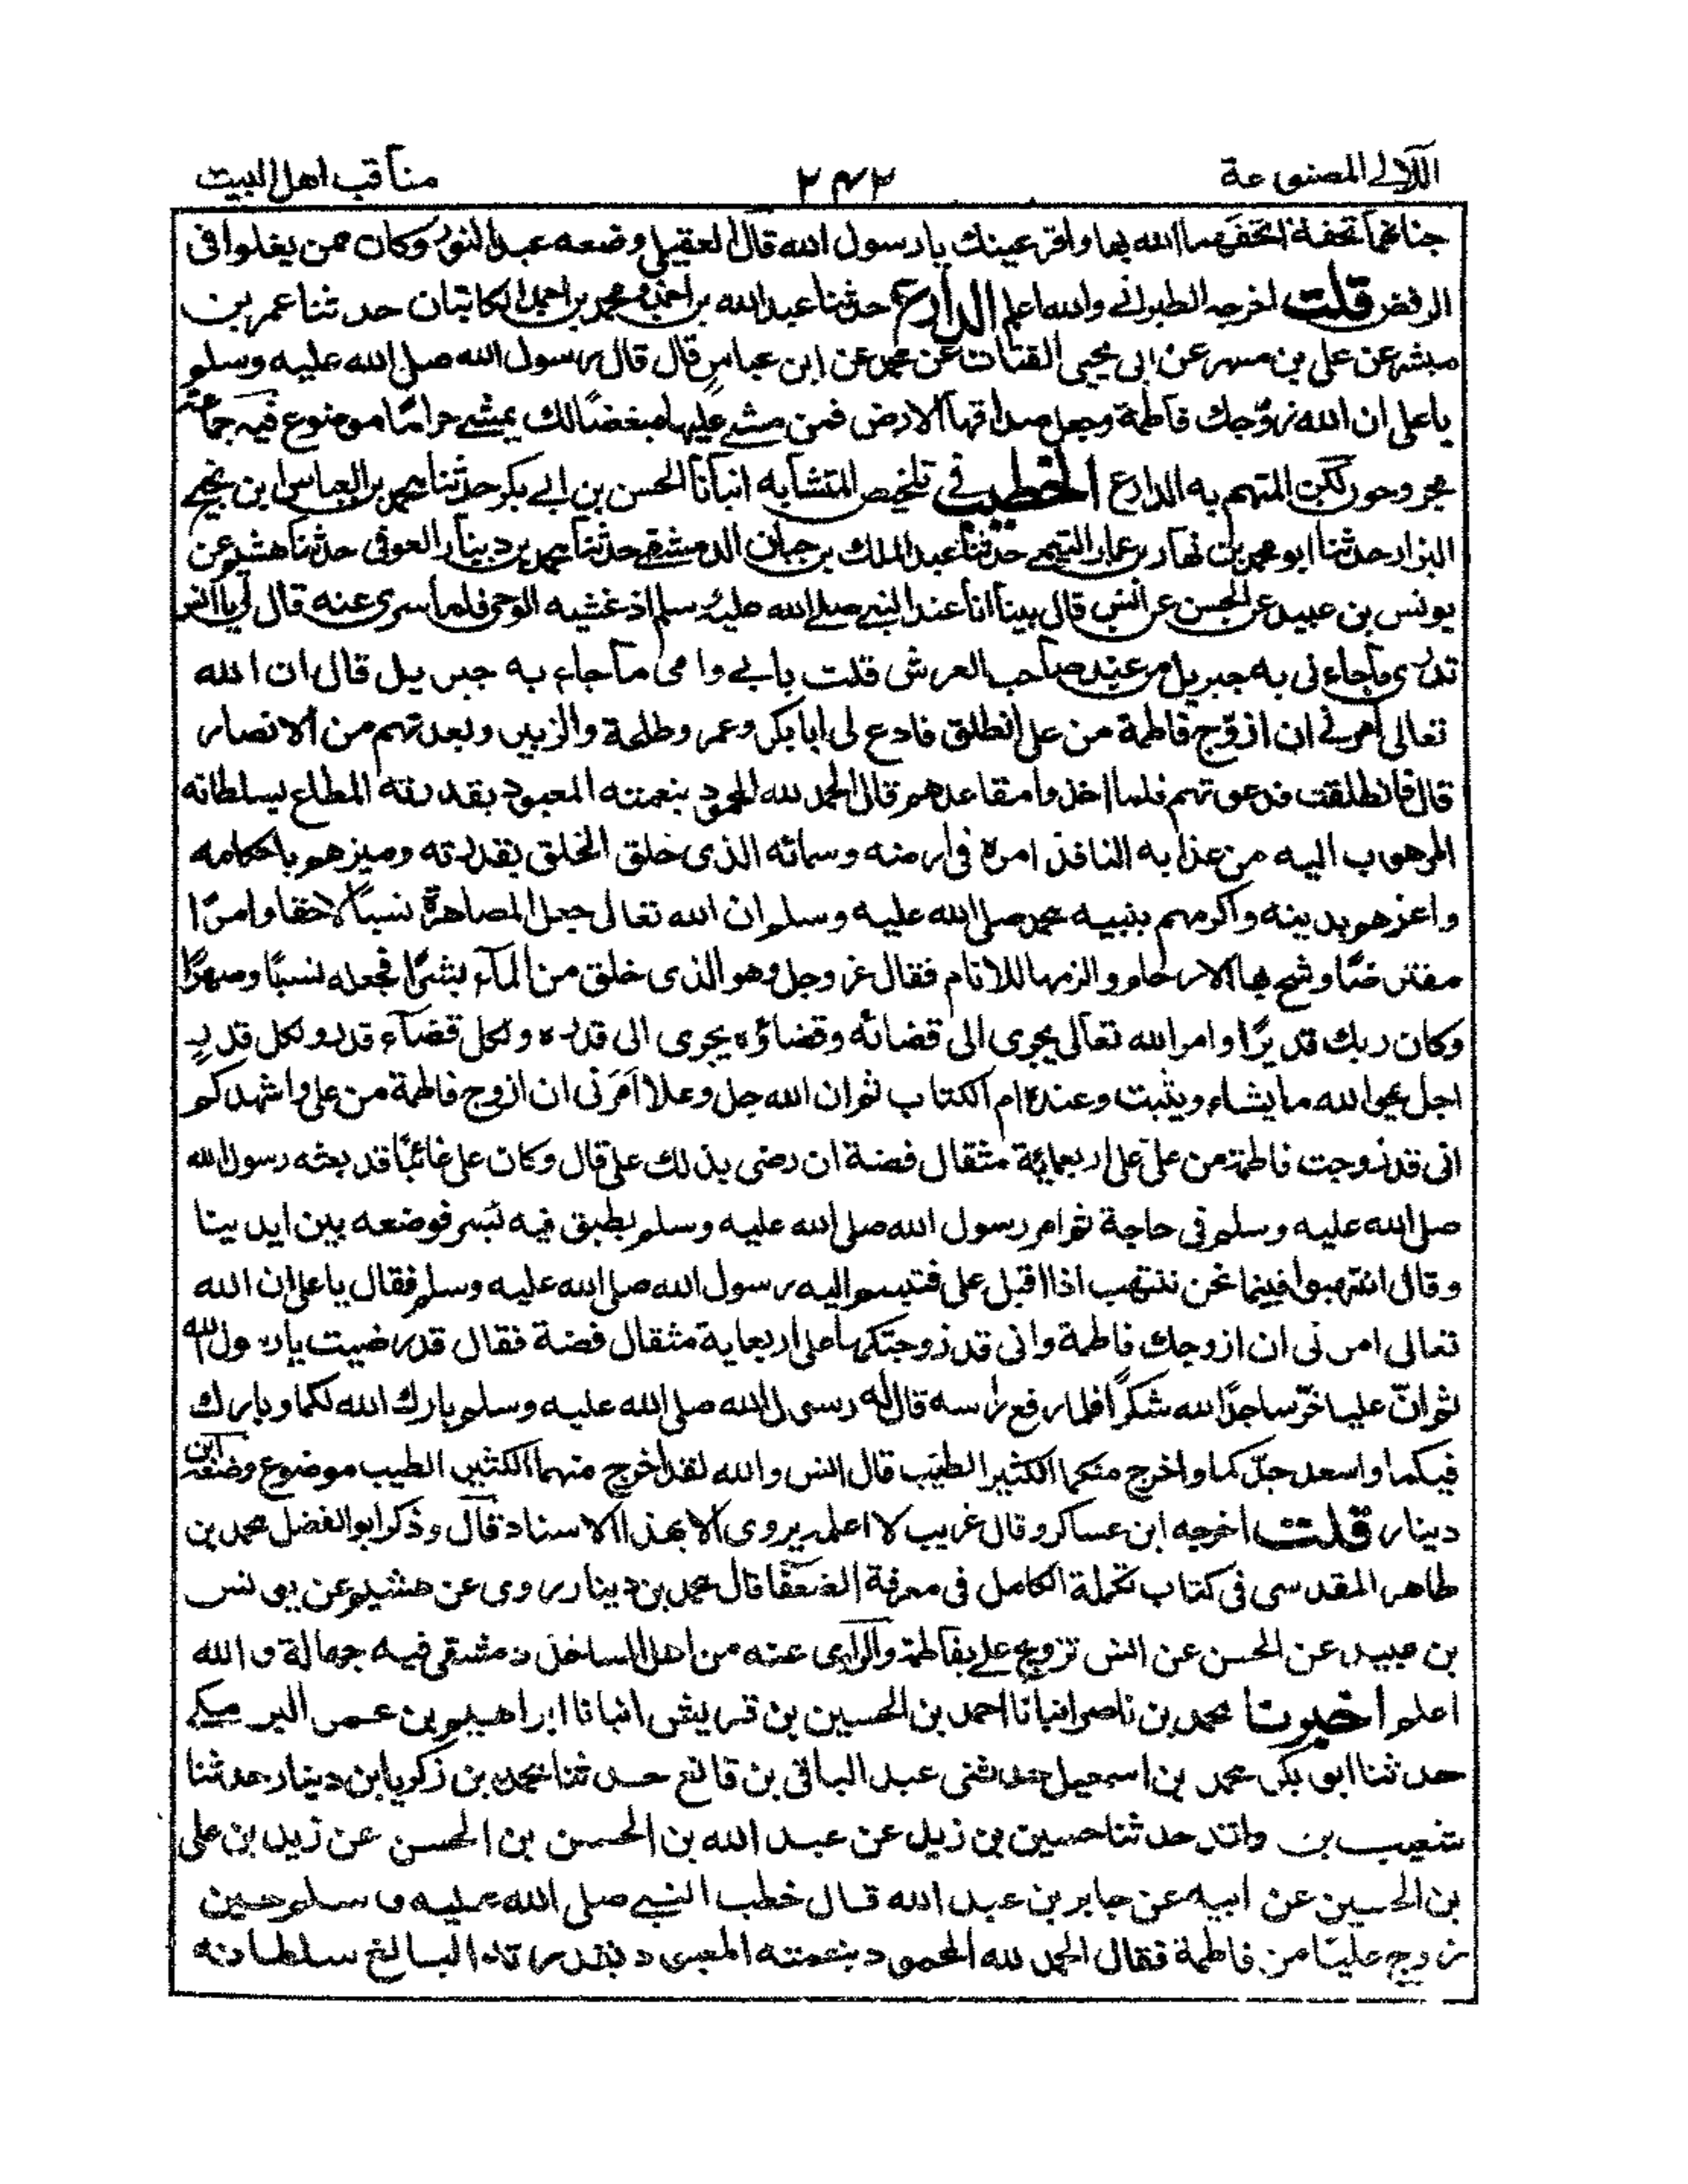 اللآلي المصنوعة
٢٤٢
مناقب اهل البيت
جناتهما تحفة اتحفهما الله بها واقر عينك يا رسول الله قال العقيلي وضعه عبد النور وكان ممن يغلوا فى
الرفض قلت اخرجه الطبراني والله اعلم الدارع حدثنا عبد الله بن احمد ومحمد بن احمد الكاتبان حدثنا عمر بن
مبشر عن على بن مسهر عن ابى يحيى القتات عن عن ابن عباس قال قال رسول الله صلى الله عليه وسلم
يا على ان الله زوّجك فاطمة وجعل صداقها الارض فمن مشى عليها مبغضًا لك يمشى حرامًا موضوع فيه جماعة
مجروحون لكن المتهم به الدارع الخطيب فى تلخيص المتشابه انبأنا الحسن بن ابي بكر حدثنا محمد بن العباس ابن نجيح
البزار حدثنا ابو محمد بن نهار بن عمار التيمي حدثنا عبد الملك بن خيان الدمشقي حدثنا محمد بن دينار العوفى حدثنا هشيم عن
يونس بن عبيد عن الحسن عن انس قال بينا انا عند النبي صلى الله عليه وسلم اذ غشيه الوحى فلما سرى عنه قال لى يا انس
تدرى ما جاءنى به جبريل من عند صاحب العرش قلت بابى وامى ما جاء به جبريل قال ان الله
تعالى امرنى ان ازوّج فاطمة من على انطلق فادع لى ابا بكر وعمر وطلحة والزبير وبعدتهم من الانصار
قال فانطلقت فدعوتهم فلما اخذوا مقاعدهم قال الحمد لله المحمود بنعمته المعبود بقدرته المطاع بسلطانه
المرهوب اليه من عذابه النافذ امره فى ارضه وسمائه الذى خلق الخلق بقدرته وميزهم باحكامه
واعزهم بدينه واكرمهم بنبيه محمد صلى الله عليه وسلم ان الله تعالى جعل المصاهرة نسبًا لاحقا وامرًا
مفترضًا وشح بها الارحام والزمها للانام فقال عز وجل وهو الذى خلق من المآء بشرًا فجعله نسبًا وصهرًا
وكان ربك قديرًا وامر الله تعالى يجرى الى قضائه وقضاؤه يجرى الى قدره ولكل قضآء قدر ولكل قدر
اجل يمحو الله ما يشاء ويثبت وعنده ام الكتاب ثم ان الله جل وعلا امرنى ان ازوج فاطمة من على واشهدكم
انى قد زوجت فاطمة من على على اربعمائة مثقال فضة ان رضى بذلك على قال وكان على غائبًا قد بعثه رسول الله
صلى الله عليه وسلم فى حاجة ثم امر رسول الله صلى الله عليه وسلم بطبق فيه بسر فوضعه بين ايدينا
وقال انتهبوا فبينما نحن ننتهب اذا اقبل على فتبسم اليه رسول الله صلى الله عليه وسلم فقال يا على ان الله
تعالى امرنى ان ازوجك فاطمة وانى قد زوجتكها على اربعماية مثقال فضة فقال قد رضيت يا رسول الله
ثم انّ عليا خرّ ساجدًا لله شكرًا فلما رفع رأسه قال له رسول الله صلى الله عليه وسلم بارك الله لكما وبارك
فيكما واسعد جدّكما واخرج منكما الكثير الطيّب قال انس والله لقد اخرج منهما الكثير الطيب موضوع وضعه ابن
دينار قلت اخرجه ابن عساكر وقال غريب لا اعلمه يروى الا بهذا الاسناد قال وذكر ابو الفضل محمد بن
طاهر المقدسى فى كتاب تكملة الكامل فى معرفة الضعفا قال محمد بن دينار روى عن هشيم عن يونس
بن عبيد عن الحسن عن انس تزويج على بفاطمة والراوى عنه من اهل الساحل دمشقى فيه جهالة والله
اعلم اخبرنا محمد بن ناصر انبانا احمد بن الحسين بن قريش انبانا ابراهيم بن عمر البرمكى
حدثنا ابو بكر محمد بن اسمعيل حدثنى عبد الباقى بن قانع حدثنا محمد بن زكريا بن دينار حدثنا
شعيب بن واقد حدثنا حسين بن زيد عن عبد الله بن الحسن بن الحسن عن زيد بن على
بن الحسين عن ابيه عن جابر بن عبد الله قال خطب النبي صلى الله عليه وسلم حين
زوج عليًا من فاطمة فقال الحمد لله المحمود بنعمته المعبود بقدرته البالغ سلطانه